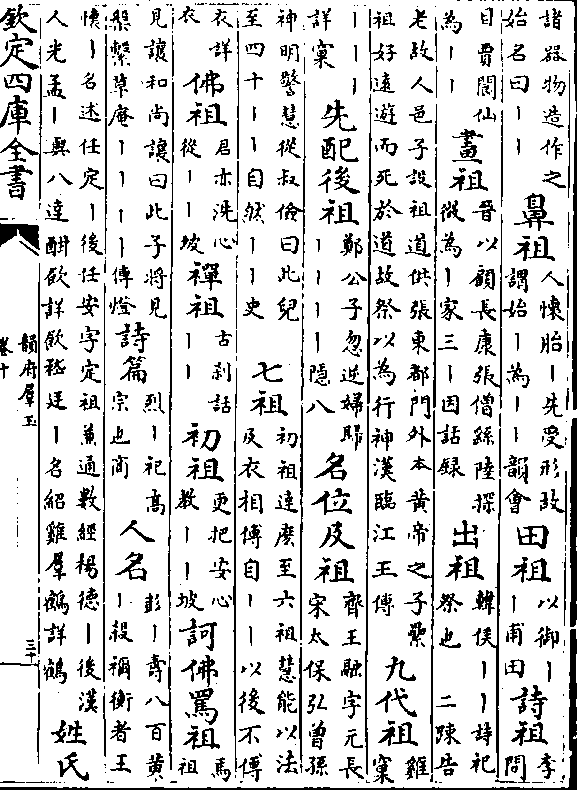 諸器物造作之
始名曰｜｜
鼻祖
人懷胎｜先受形故
謂始｜為｜｜韻會
田祖
以御｜
｜甫田
詩祖
李
問
目賈閬仙
為｜｜
畫祖
晉以顧長康張僧繇陸探
微為｜家三｜因話録
出祖
韓侯｜｜詩祀
祭也 二疎告
老故人邑子設祖道供張東都門外本黄帝之子纍
祖好遠遊而死於道故祭以為行神漢臨江王傳
九代祖
雞
窠
｜｜｜
詳窠
先配後祖
鄭公子忽逆婦歸
｜｜｜｜隱八
名位及祖
齊王融字元長
宋太保弘曾孫
神明警慧從叔儉曰此兒
至四十｜｜自然｜｜史
七祖
初祖達磨至六祖慧能以法
及衣相傳自｜｜以後不傳
衣詳
衣
佛祖
君亦洗心
從｜｜坡
禪祖
古刹話
｜｜
初祖
更把安心
教｜｜坡
訶佛罵祖
馬
祖
見讓和尚讓曰此子將見
草庵｜｜｜｜傳燈
詩篇
烈｜祀髙
宗也商
人名
彭｜壽八百黄
｜殺禰衡者王
懷｜名述任定｜後任安字定祖兼通數經楊德｜後漢
人光孟｜與八達酣飲詳飲嵇廷｜名紹雞羣鶴詳鶴
姓氏
欽定四庫全書
韻府羣玉
卷十
三十